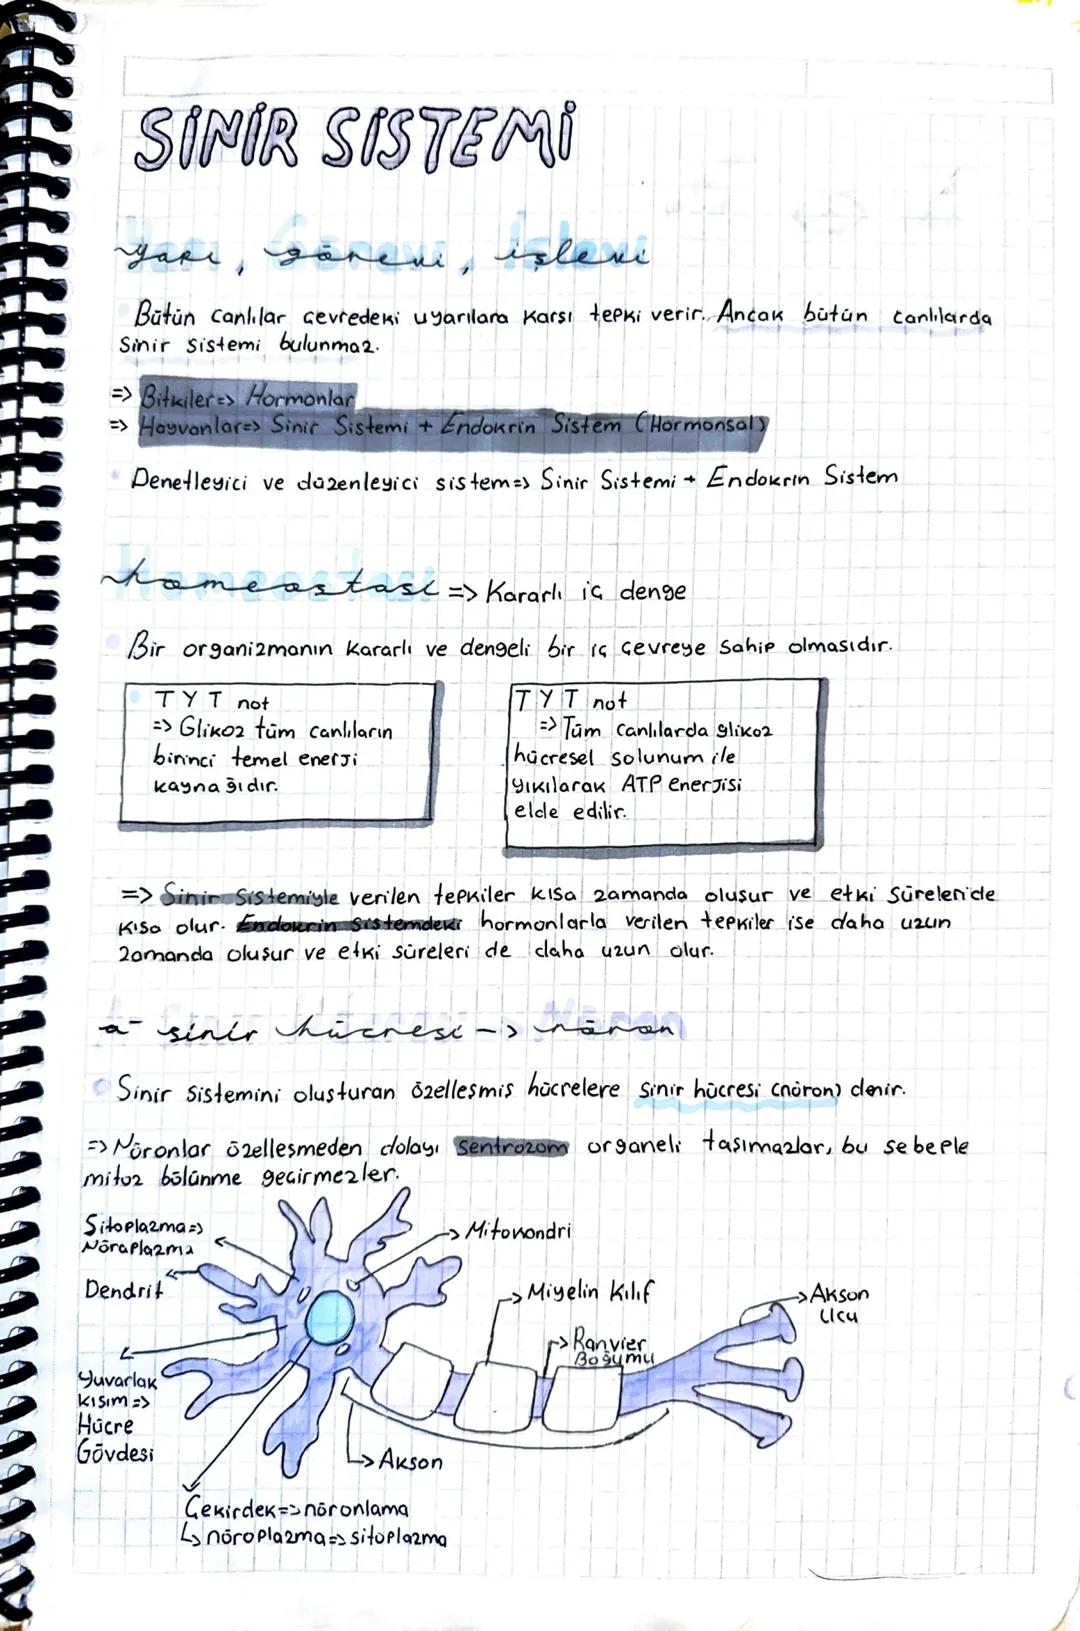 SİNİR SİSTEMİ
Yapı, Görevi, İşlevi
Bütün canlılar çevredeki uyarılara karşı tepki verir. Ancak bütün canlılarda
sinir sistemi bulunmaz.
=> Bitkiler=> Hormonlar
=> Hayvanlar=> Sinir Sistemi + Endokrin Sistem (Hormonsal)
Denetleyici ve düzenleyici sistem=> Sinir Sistemi + Endokrin Sistem
Homeostasi => Kararlı iç denge
Bir organizmanın kararlı ve dengeli bir iç çevreye sahip olmasıdır.
TYT not
=> Glikoz tüm canlıların
birinci temel enerji
kaynağıdır.
TYT not
=> Tüm canlılarda glikoz
hücresel solunum ile
yıkılarak ATP enerjisi
elde edilir.
=> Sinir Sistemiyle verilen tepkiler kısa zamanda oluşur ve etki süreleri de
kısa olur. Endokrin Sistemdeki hormonlarla verilen tepkiler ise daha uzun
zamanda oluşur ve etki süreleri de daha uzun olur.
a- sinir hücresi -> nöron
Sinir sistemini oluşturan özelleşmiş hücrelere sinir hücresi (nöron) denir.
=> Nöronlar özelleşmeden dolayı sentrozom organeli taşımazlar, bu sebeple
mitoz bölünme geçirmezler.
Sitoplazma=>
Nöraplazma
Mitokondri
Dendrit
Miyelin Kılıf
Akson
Ucu
Ranvier
Boğumu
Yuvarlak
kısım =>
Hücre
Gövdesi
Akson
Çekirdek=> nöronlama
↳ nöroplazma=> sitoplazma